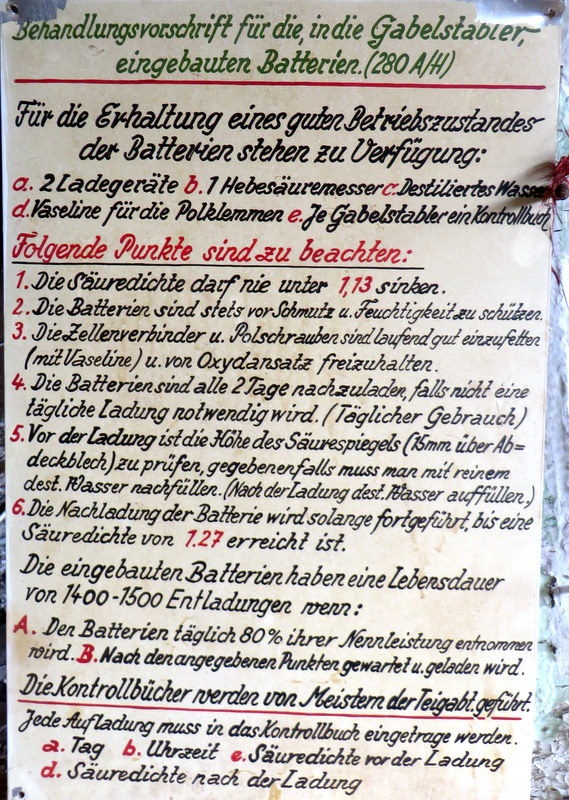 Behandlungsvorschrift für die, in die Gabelstabler,
eingebauten Batterien. (280 A/H)
Für die Erhaltung eines guten Betriebszustandes
der Batterien stehen zu Verfügung:
a. 2 Ladegeräte b. 1 Hebesäuremesser c. Destiliertes Wasser
d. Vaseline für die Polklemmen e. Je Gabelstabler ein Kontrollbuch
Folgende Punkte sind zu beachten:
1. Die Säuredichte darf nie unter 1,13 sinken.
2. Die Batterien sind stets vor Schmutz u. Feuchtigkeit zu schützen.
3. Die Zellenverbinder u. Polschrauben sind laufend gut einzufetten
(mit Vaseline) u. von Oxydansatz freizuhalten.
4. Die Batterien sind alle 2 Tage nachzuladen, falls nicht eine
tägliche Ladung notwendig wird. (Täglicher Gebrauch)
5. Vor der Ladung ist die Höhe des Säurespiegels (15mm über Ab=
deckblech) zu prüfen, gegebenenfalls muss man mit reinem
dest. Wasser nachfüllen. (Nach der Ladung dest. Wasser auffüllen.)
6. Die Nachladung der Batterie wird solange fortgeführt, bis eine
Säuredichte von 1.27 erreicht ist.
Die eingebauten Batterien haben eine Lebensdauer
von 1400-1500 Entladungen wenn:
A. Den Batterien täglich 80% ihrer Nennleistung entnommen
wird. B. Nach den angegebenen Punkten gewartet u. geladen wird.
Die Kontrollbücher werden von Meistern der Teigabt. geführt.
Jede Aufladung muss in das Kontrollbuch eingetrage werden.
a. Tag b. Uhrzeit c. Säuredichte vor der Ladung
d. Säuredichte nach der Ladung